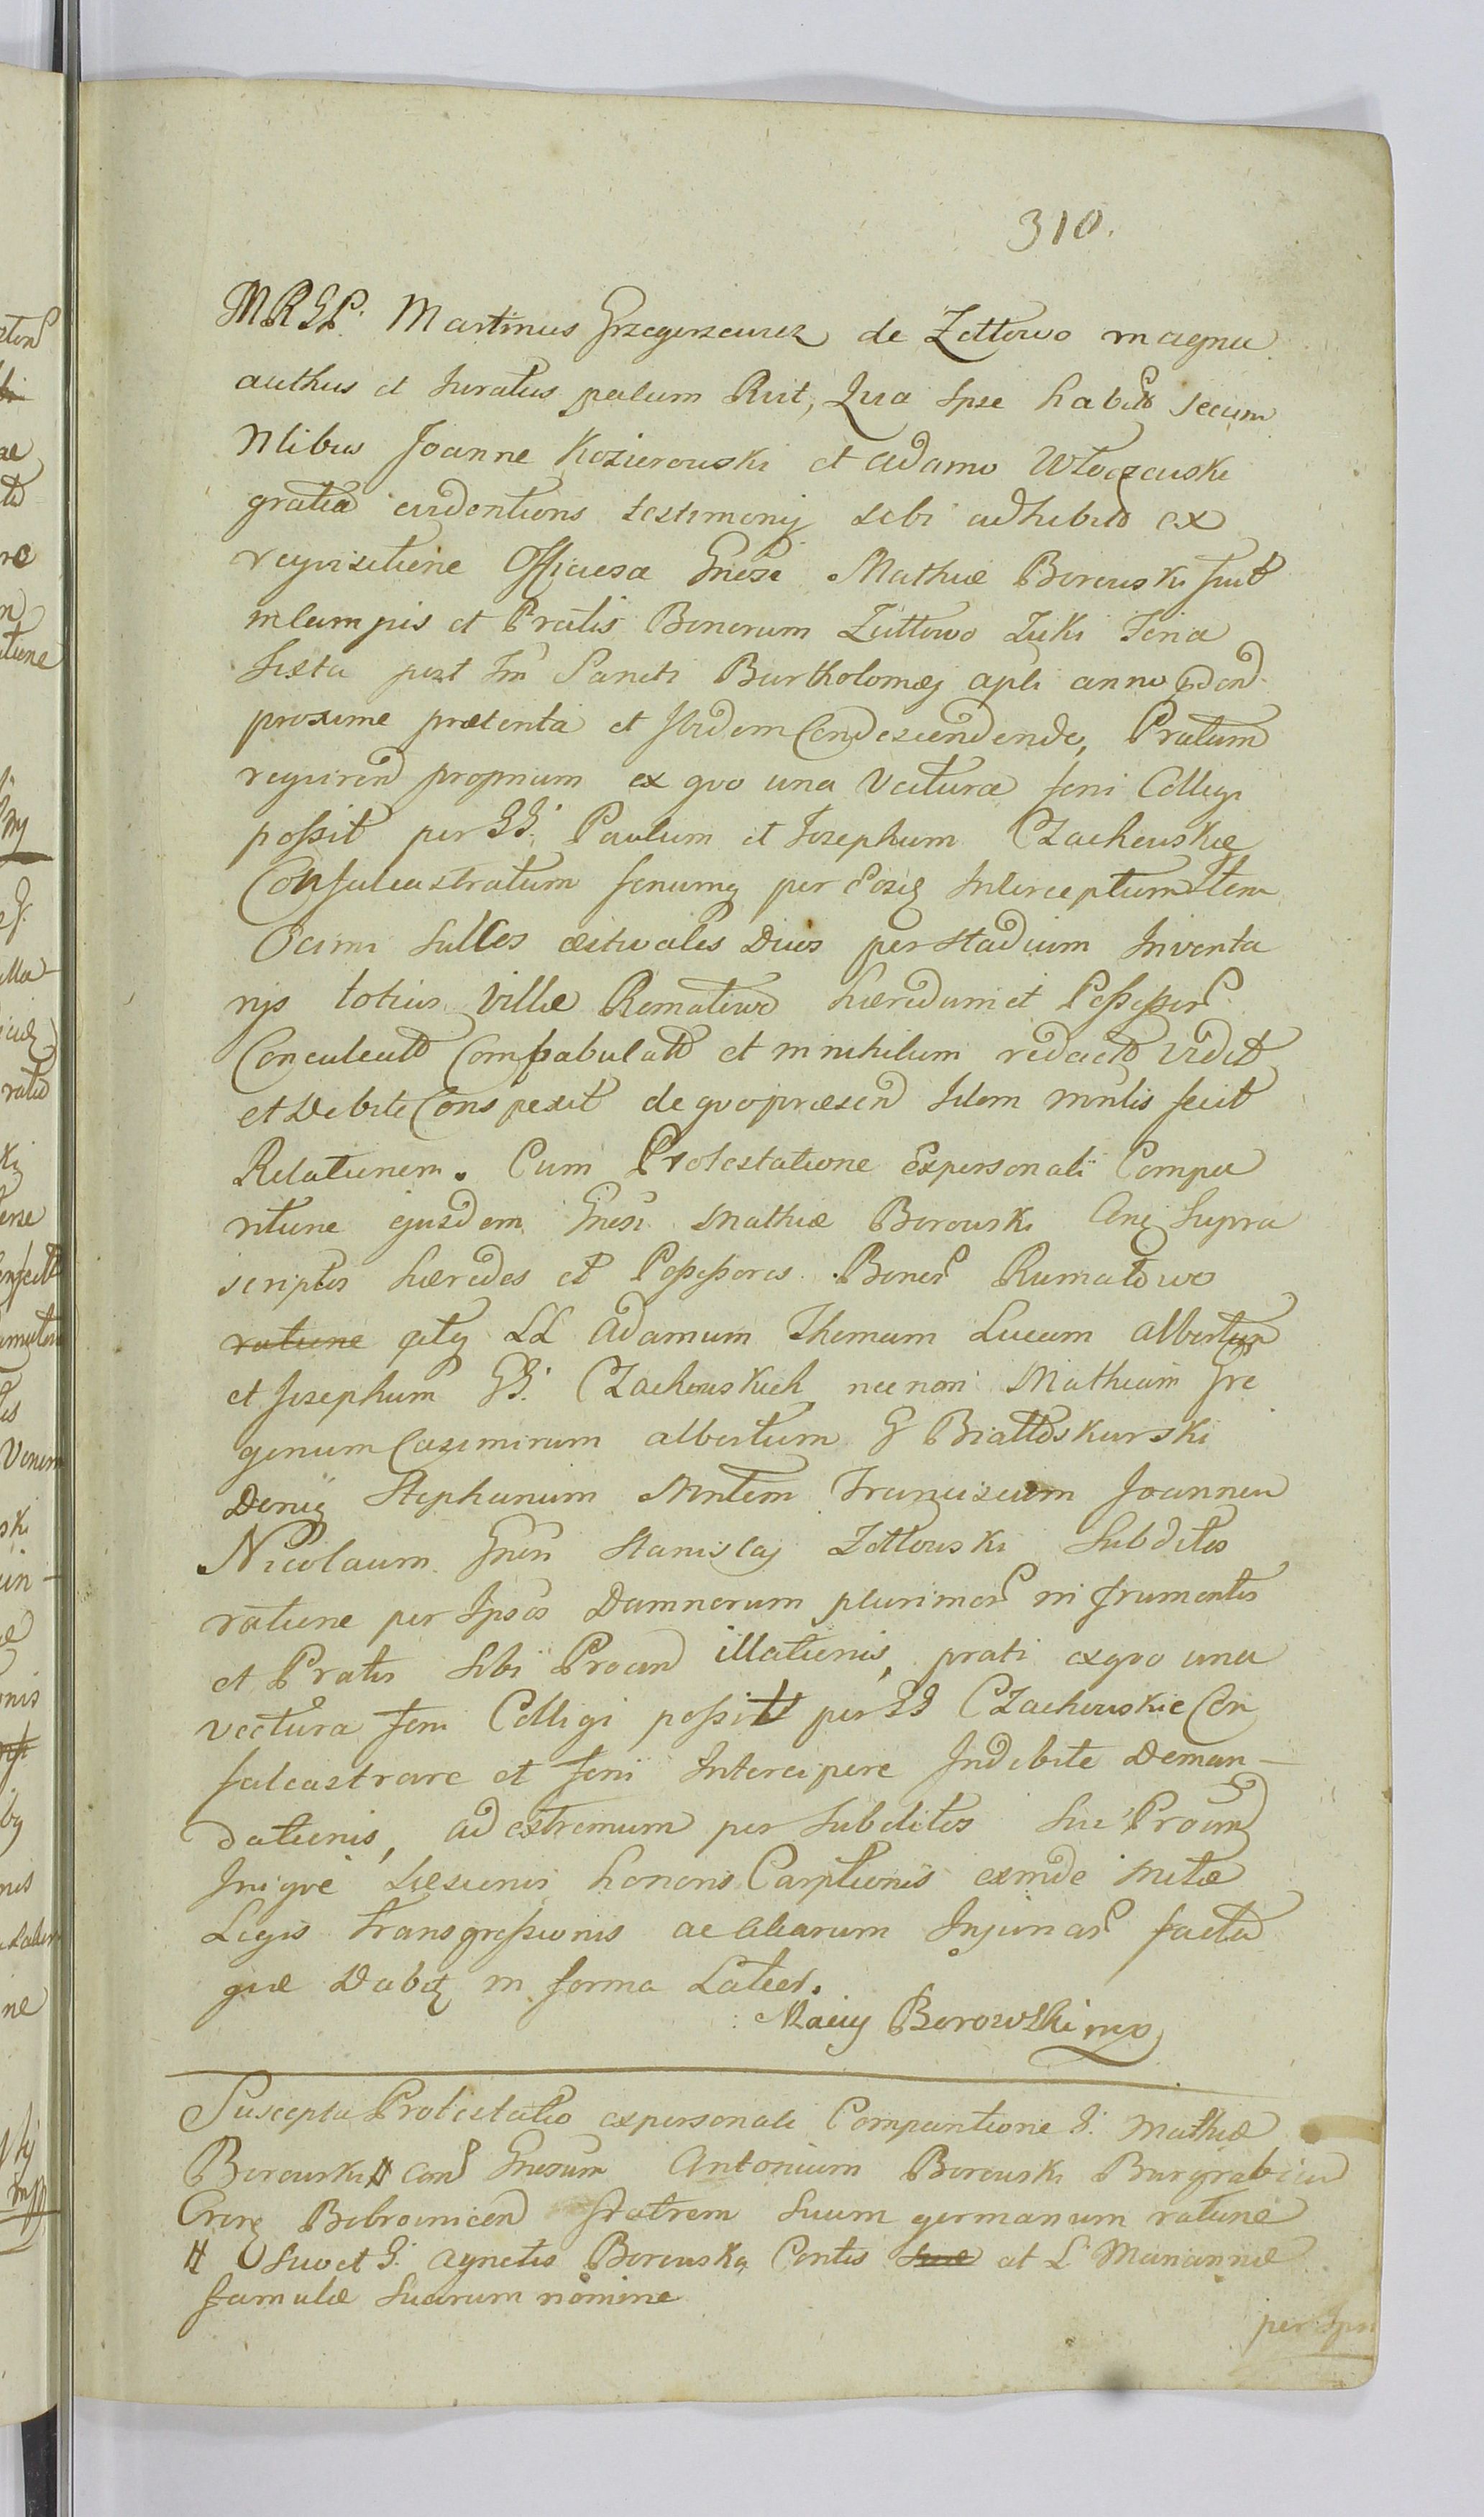 310.
MRGP. Martinus Grzegorzewicz de Zottowo magna
authus et Juratus palam Rvit, Qua Ipse habits secum
Nlibus Joanne Kozierowski et adamo Włoczewski
gratia evidentioris testimonij sibi adhibitis ex
reqvisitione Officiosa Gnesi Mathiæ Borowski fuit
in Campis et Pratis Bonorum Zottowo Zuki Feria
Sexta post Fm Sancti Bartholomæj apli anno eodem
proxime prætenta et Ibidem Condescendendo, Pratum
reqvirend proprium ex qvo una Vectura feni Colligi
possit per GG. Paulum et Josephum Czachowskie
Confulcastratum fenumq per Eosq Interceptum Item
Octim Sulcos æstivales Dies per stadium Inventa
rijs totius Villæ Romatowo hæredum et Possessor
Conculcats Compabulats et in nihilum redacts Vidit
et Debite Conspexit de qvo præsen Idem mnlis fecit
Relationem. Cum Protestatione Ex personali Compa
ritione ejusdem Gnesi Mathiæ Borowski Cnq Supra
scriptos hæredes et Possessores Bonor Rumatowo
ratione qstq LL Adamum Thomam Lucam albertum
et Josephum GG. Czachowskich necnon Mathiam Gre
gorium Casimirum albertum G Białłoskurski
Deniq Stephanum Mntem Franciscum Joannem
Nicolaum Gnesi Stanislaj Zottowski Subditos
ratione per Ipsos Damnorum plurimor in frumentis
et Pratis Sibi Proand illationis, prati ex qvo una
vectura feni Colligi possit per GG Czachowskie Con
falcastrare et feni Intercipere Indebite Deman-
dationis, ad extremum per Subditos Sui Proand
Iniqve Læsionis honoris Carptionis exinde metæ
Legis transgressionis ac aliarum Injuriar facta
qvæ Dabitq in forma Latior.
Maciey Borowski mp
Suscepta Protestatio ex personali Comparitione G. Mathiæ
Borowski # Con Gnesum Antonium Borowski Burgrabium
Crem Bobrownicen fratrem Suum germanum ratione
# Suo et G. Agnetis Borowska Contis Suæ at L. Mariannæ
famulæ Suarum nomine
per Ipsu